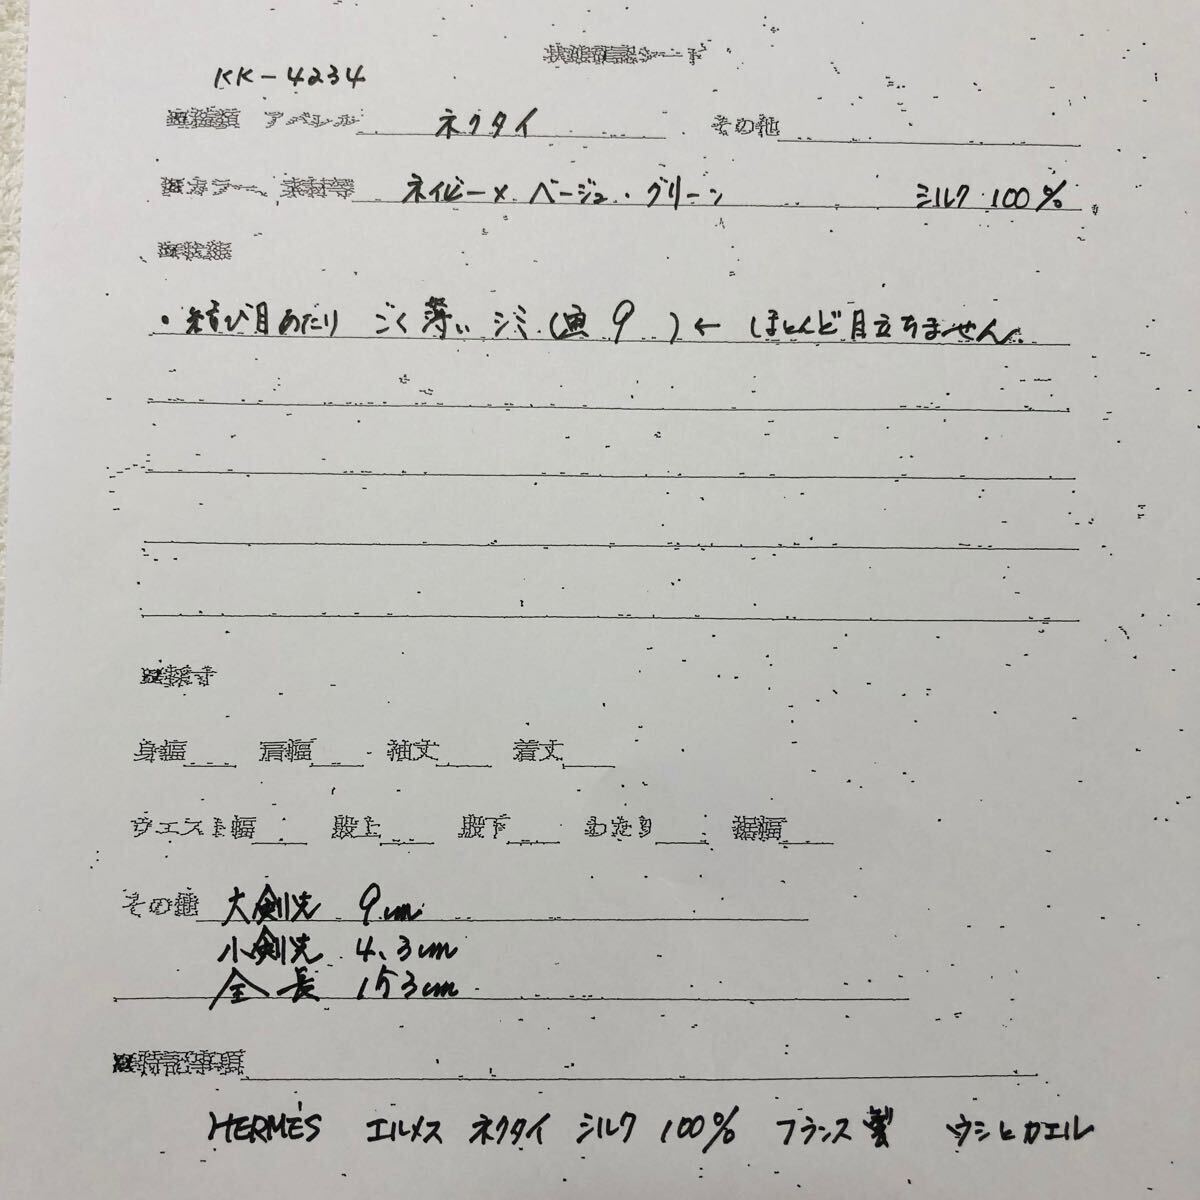 状態確認シート
KK-4234
種類 アパレル ネクタイ その他
カラー、素材等 ネイビー× ベージュ・グリーン シルク 100%
状態
・結び目あたり ごく薄い シミ (画 9 ) ← ほとんど目立ちません。
採寸
身幅 肩幅 袖丈 着丈
ウエスト幅 股上 股下 わたり 裾幅
その他 大剣先 9cm
小剣先 4.3cm
全長 153cm
特記事項
HERMÈS エルメス ネクタイ シルク 100% フランス製 ウシとカエル